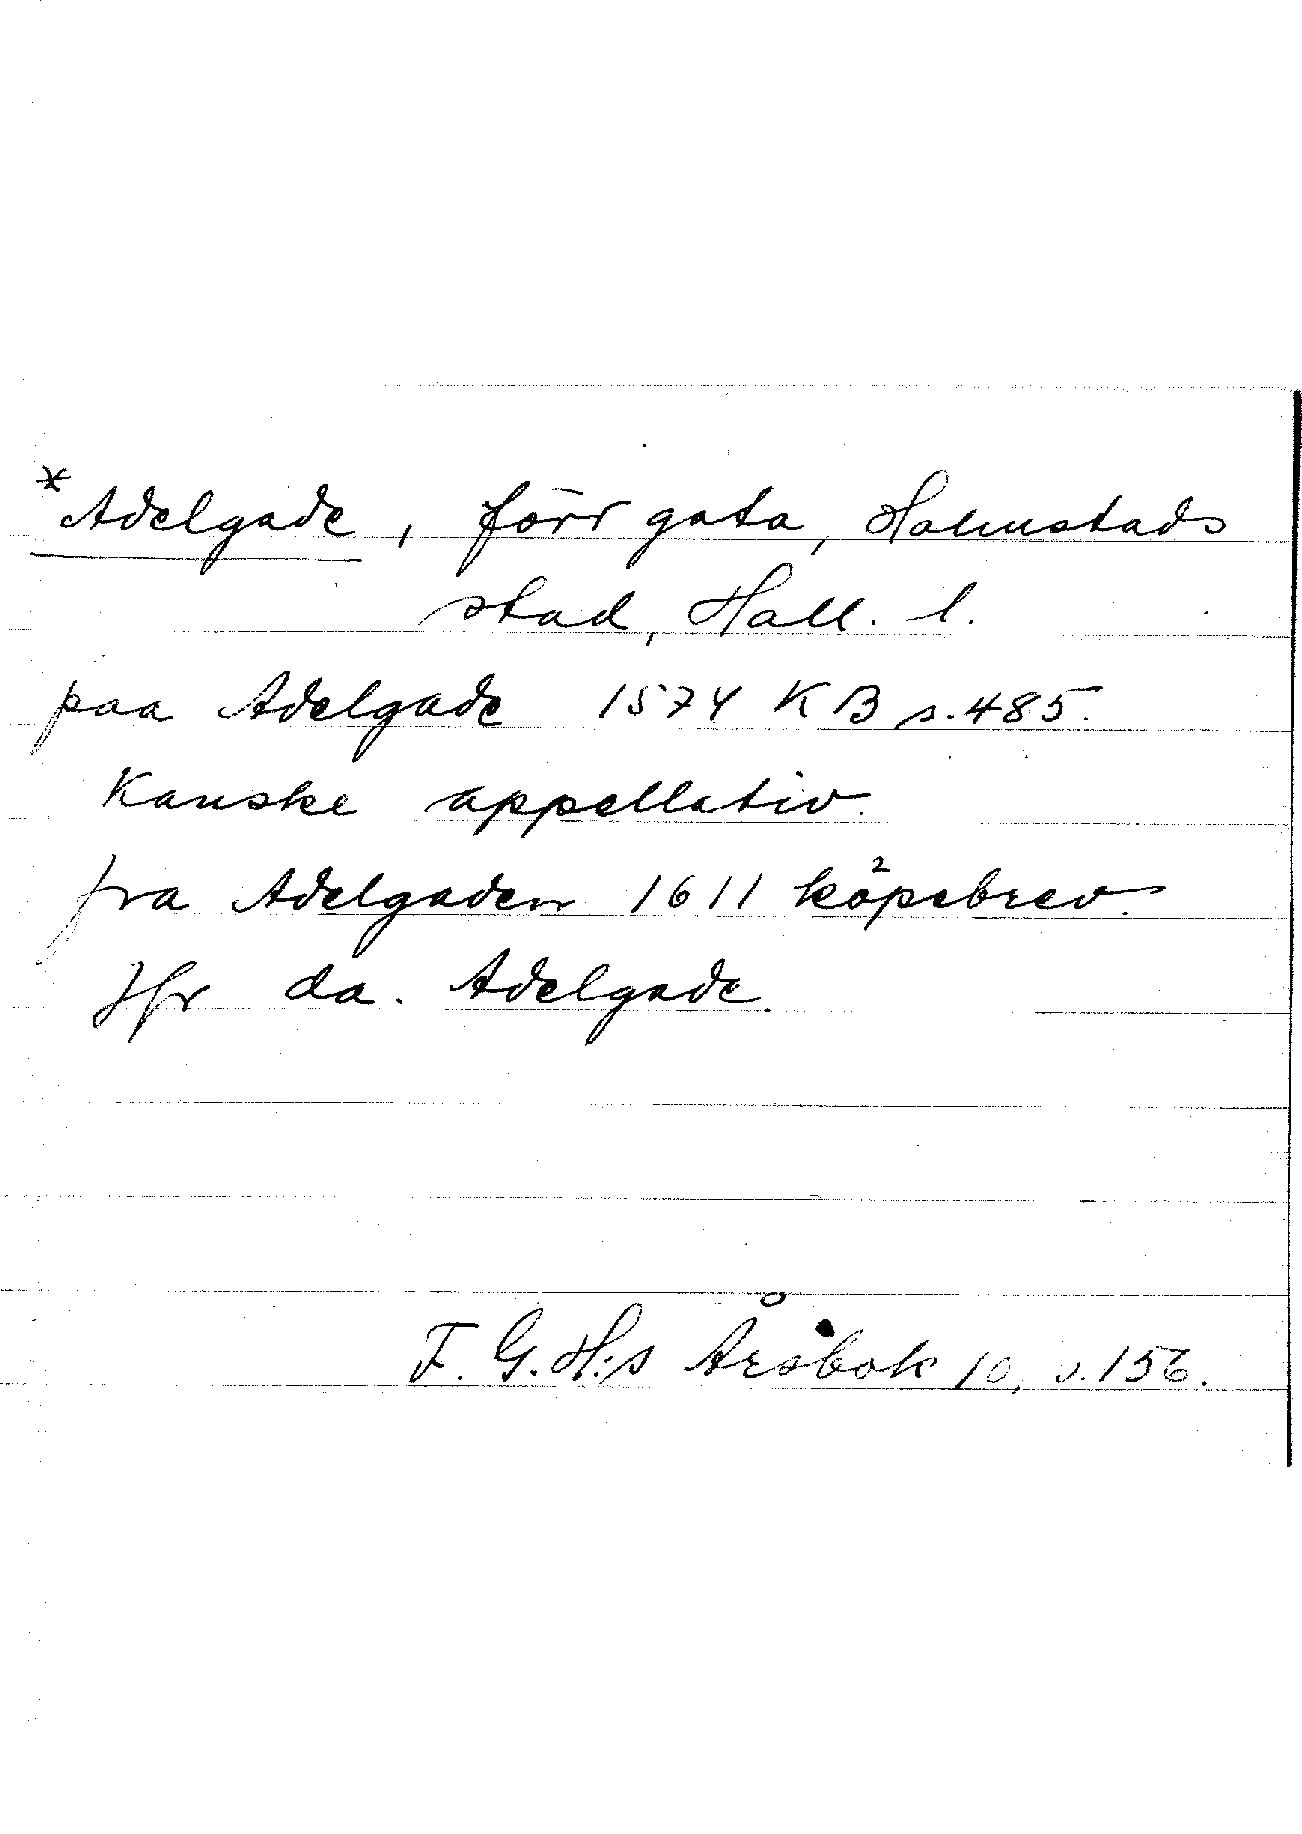 *Adelgade, förr gata, Halmstads
stad, Hall. l.
paa Adelgade 1574 KB s. 485.
Kanske appellativ.
fra Adelgaden 1611 köpebrev.
Jfr da. Adelgade.
F. G. H:s Årsbok 10, s. 156.